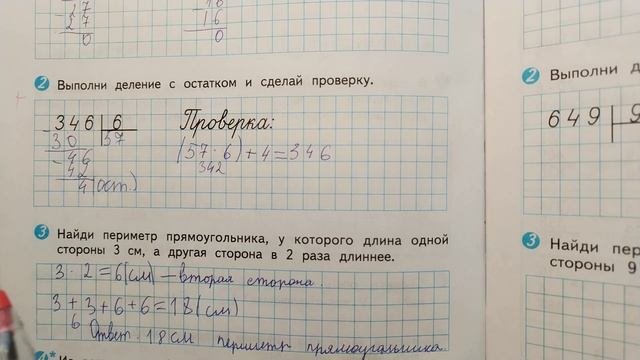 27
27
0
16
16
0
2 Выполни деление с остатком и сделай проверку.
346 6
30 57
46
42
4(ост.)
Проверка:
(57·6)+4=346
342
3 Найди периметр прямоугольника, у которого длина одной
стороны 3 см, а другая сторона в 2 раза длиннее.
3·2=6(см)–вторая сторона.
3+3+6+6=18(см)
6
Ответ. 18см периметр прямоугольника.
4*
2 Выполни д
649
3 Найди пер
стороны 9